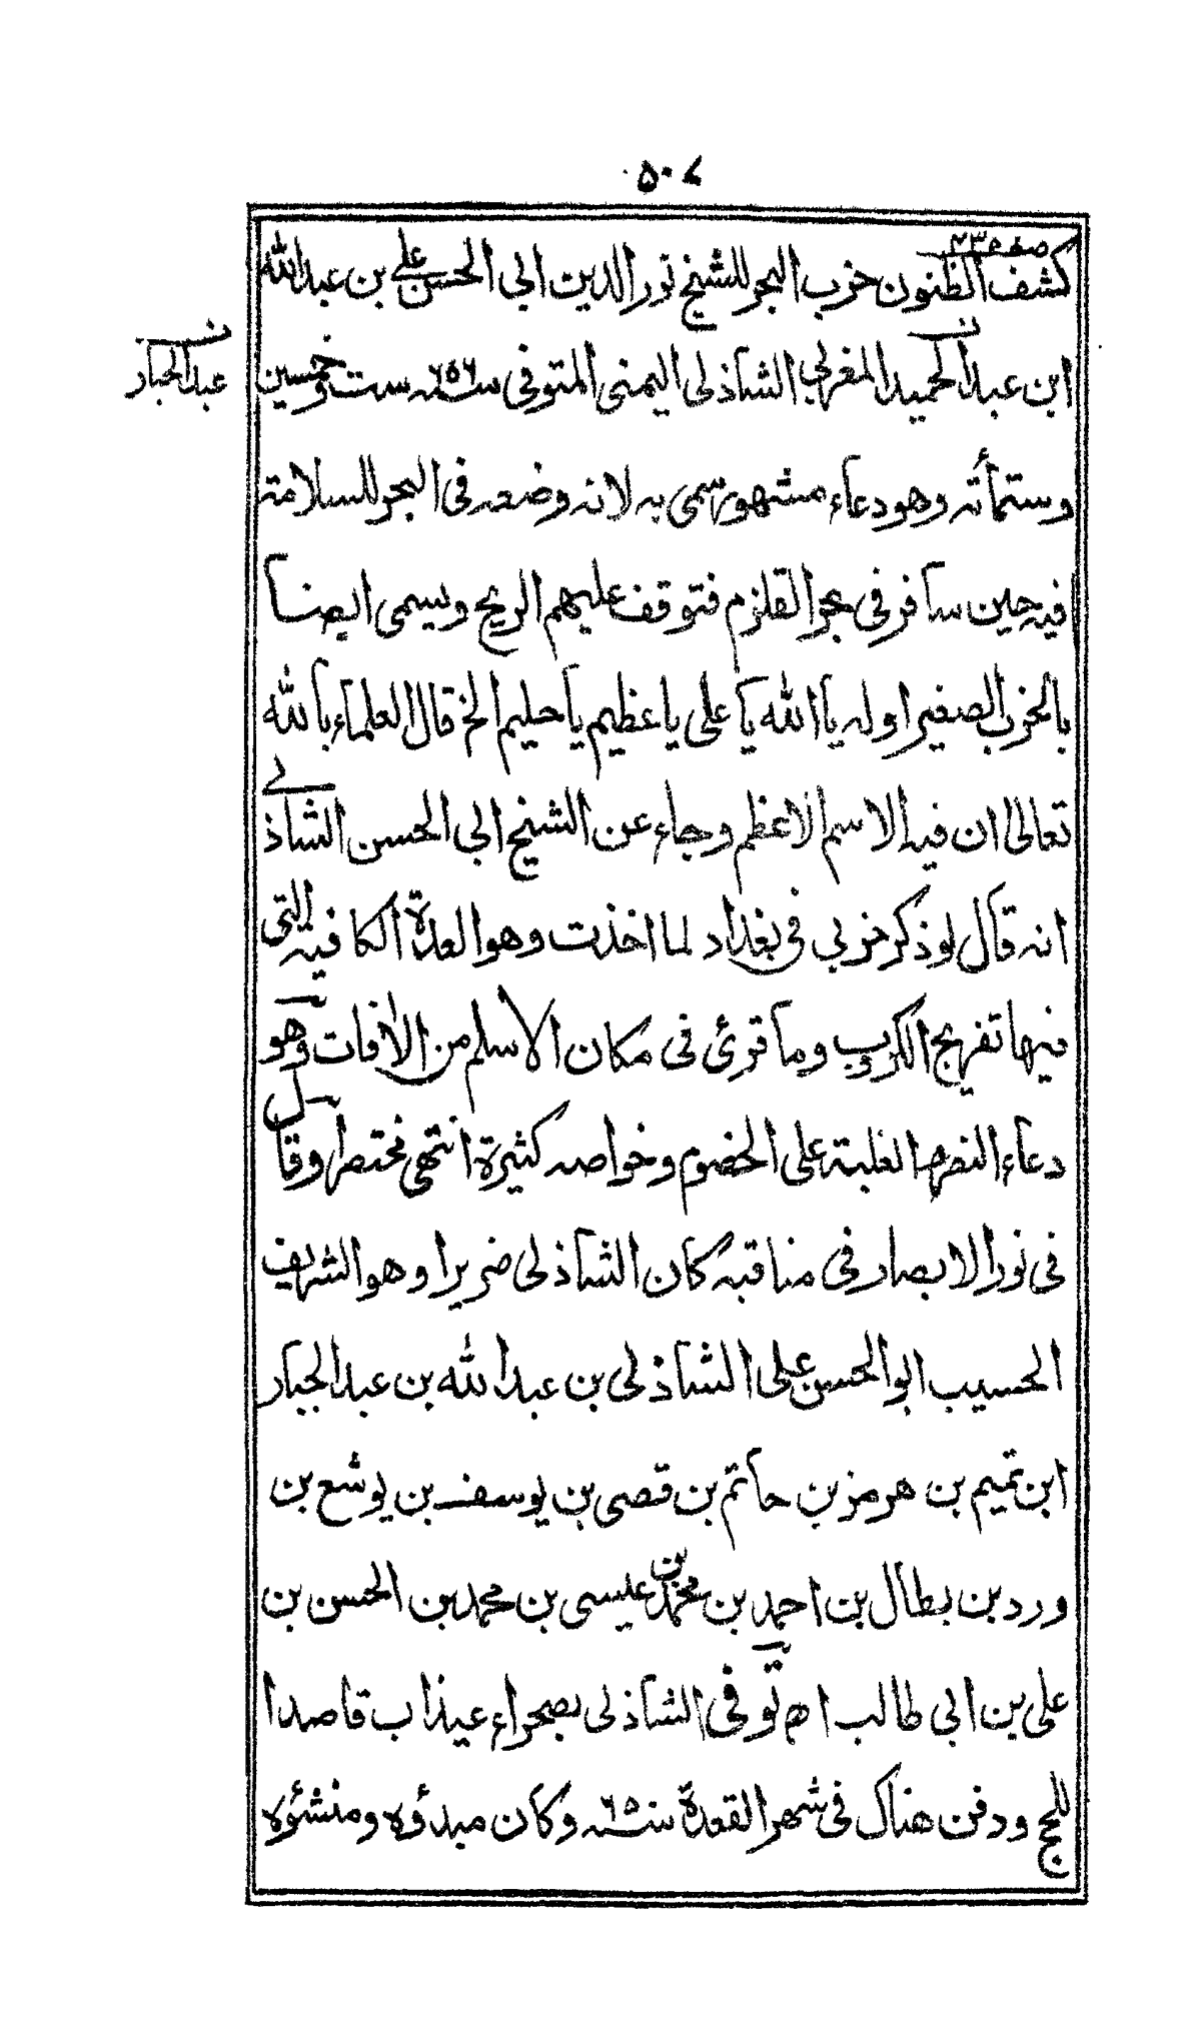 ٥٠٧
كشف الظنون حزب البحر للشيخ نور الدين ابي الحسن علي بن عبدالله
ابن عبدالحميد المغربي الشاذلى اليمنى المتوفى سنه ٦٥٦ ست وخمسين
عبدالجبار
وستمأئه وهو دعاء مشهور سمى به لانه وضعه فى البحر للسلامة
فيه حين سافر فى بحر القلزم فتوقف عليهم الريح ويسمى ايضا
بالحزب الصغير اوله يا الله يا على يا عظيم يا حليم الخ قال العلماء بالله
تعالى ان فيه الاسم الاعظم وجاء عن الشيخ ابي الحسن الشاذلي
انه قال لو ذكر حزبي فى بغداد لما اخذت وهو العدة الكافية التى
فيها تفريج الكروب وما قرئ فى مكان الا سلم من الافات وهو
دعاء النصر والغلبة على الخصوم وخواصه كثيرة انتهى مختصرا وقال
فى نور الابصار فى مناقبه كان الشاذلى ضريرا وهو الشريف
الحسيب ابوالحسن على الشاذلى بن عبدالله بن عبدالجبار
ابن تميم بن هرمز بن حاتم بن قصى بن يوسف بن يوشع بن
ورد بن بطال بن احمد بن محمد بن عيسى بن محمد بن الحسن بن
على بن ابي طالب اه توفى الشاذلى بصحراء عيذاب قاصدا
للحج ودفن هناك فى شهر القعدة سنه ٦٥ وكان مبدؤه ومنشؤه